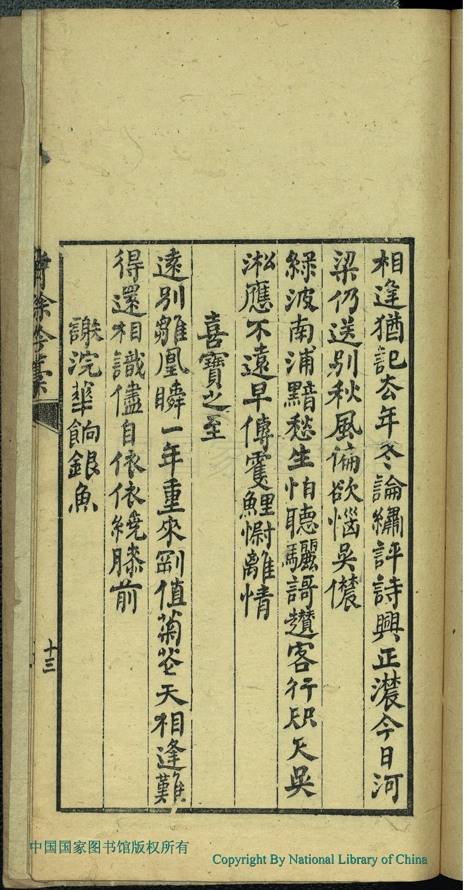 相逢猶記厺年冬論繡評詩興正濃今日河
梁仍送别秋風偏欲惱吳儂
綠波南浦黯愁生怕聽驪謌趲客行咫尺吳
淞應不遠早傳雙鯉慰離情
喜寶之至
遠别雛凰瞬一年重來剛值菊花天相逢難
得還相識儘自依依繞膝前
謝浣華餉銀魚
餘吟藁
十三
中国国家图书馆版权所有
Copyright By National Library of China